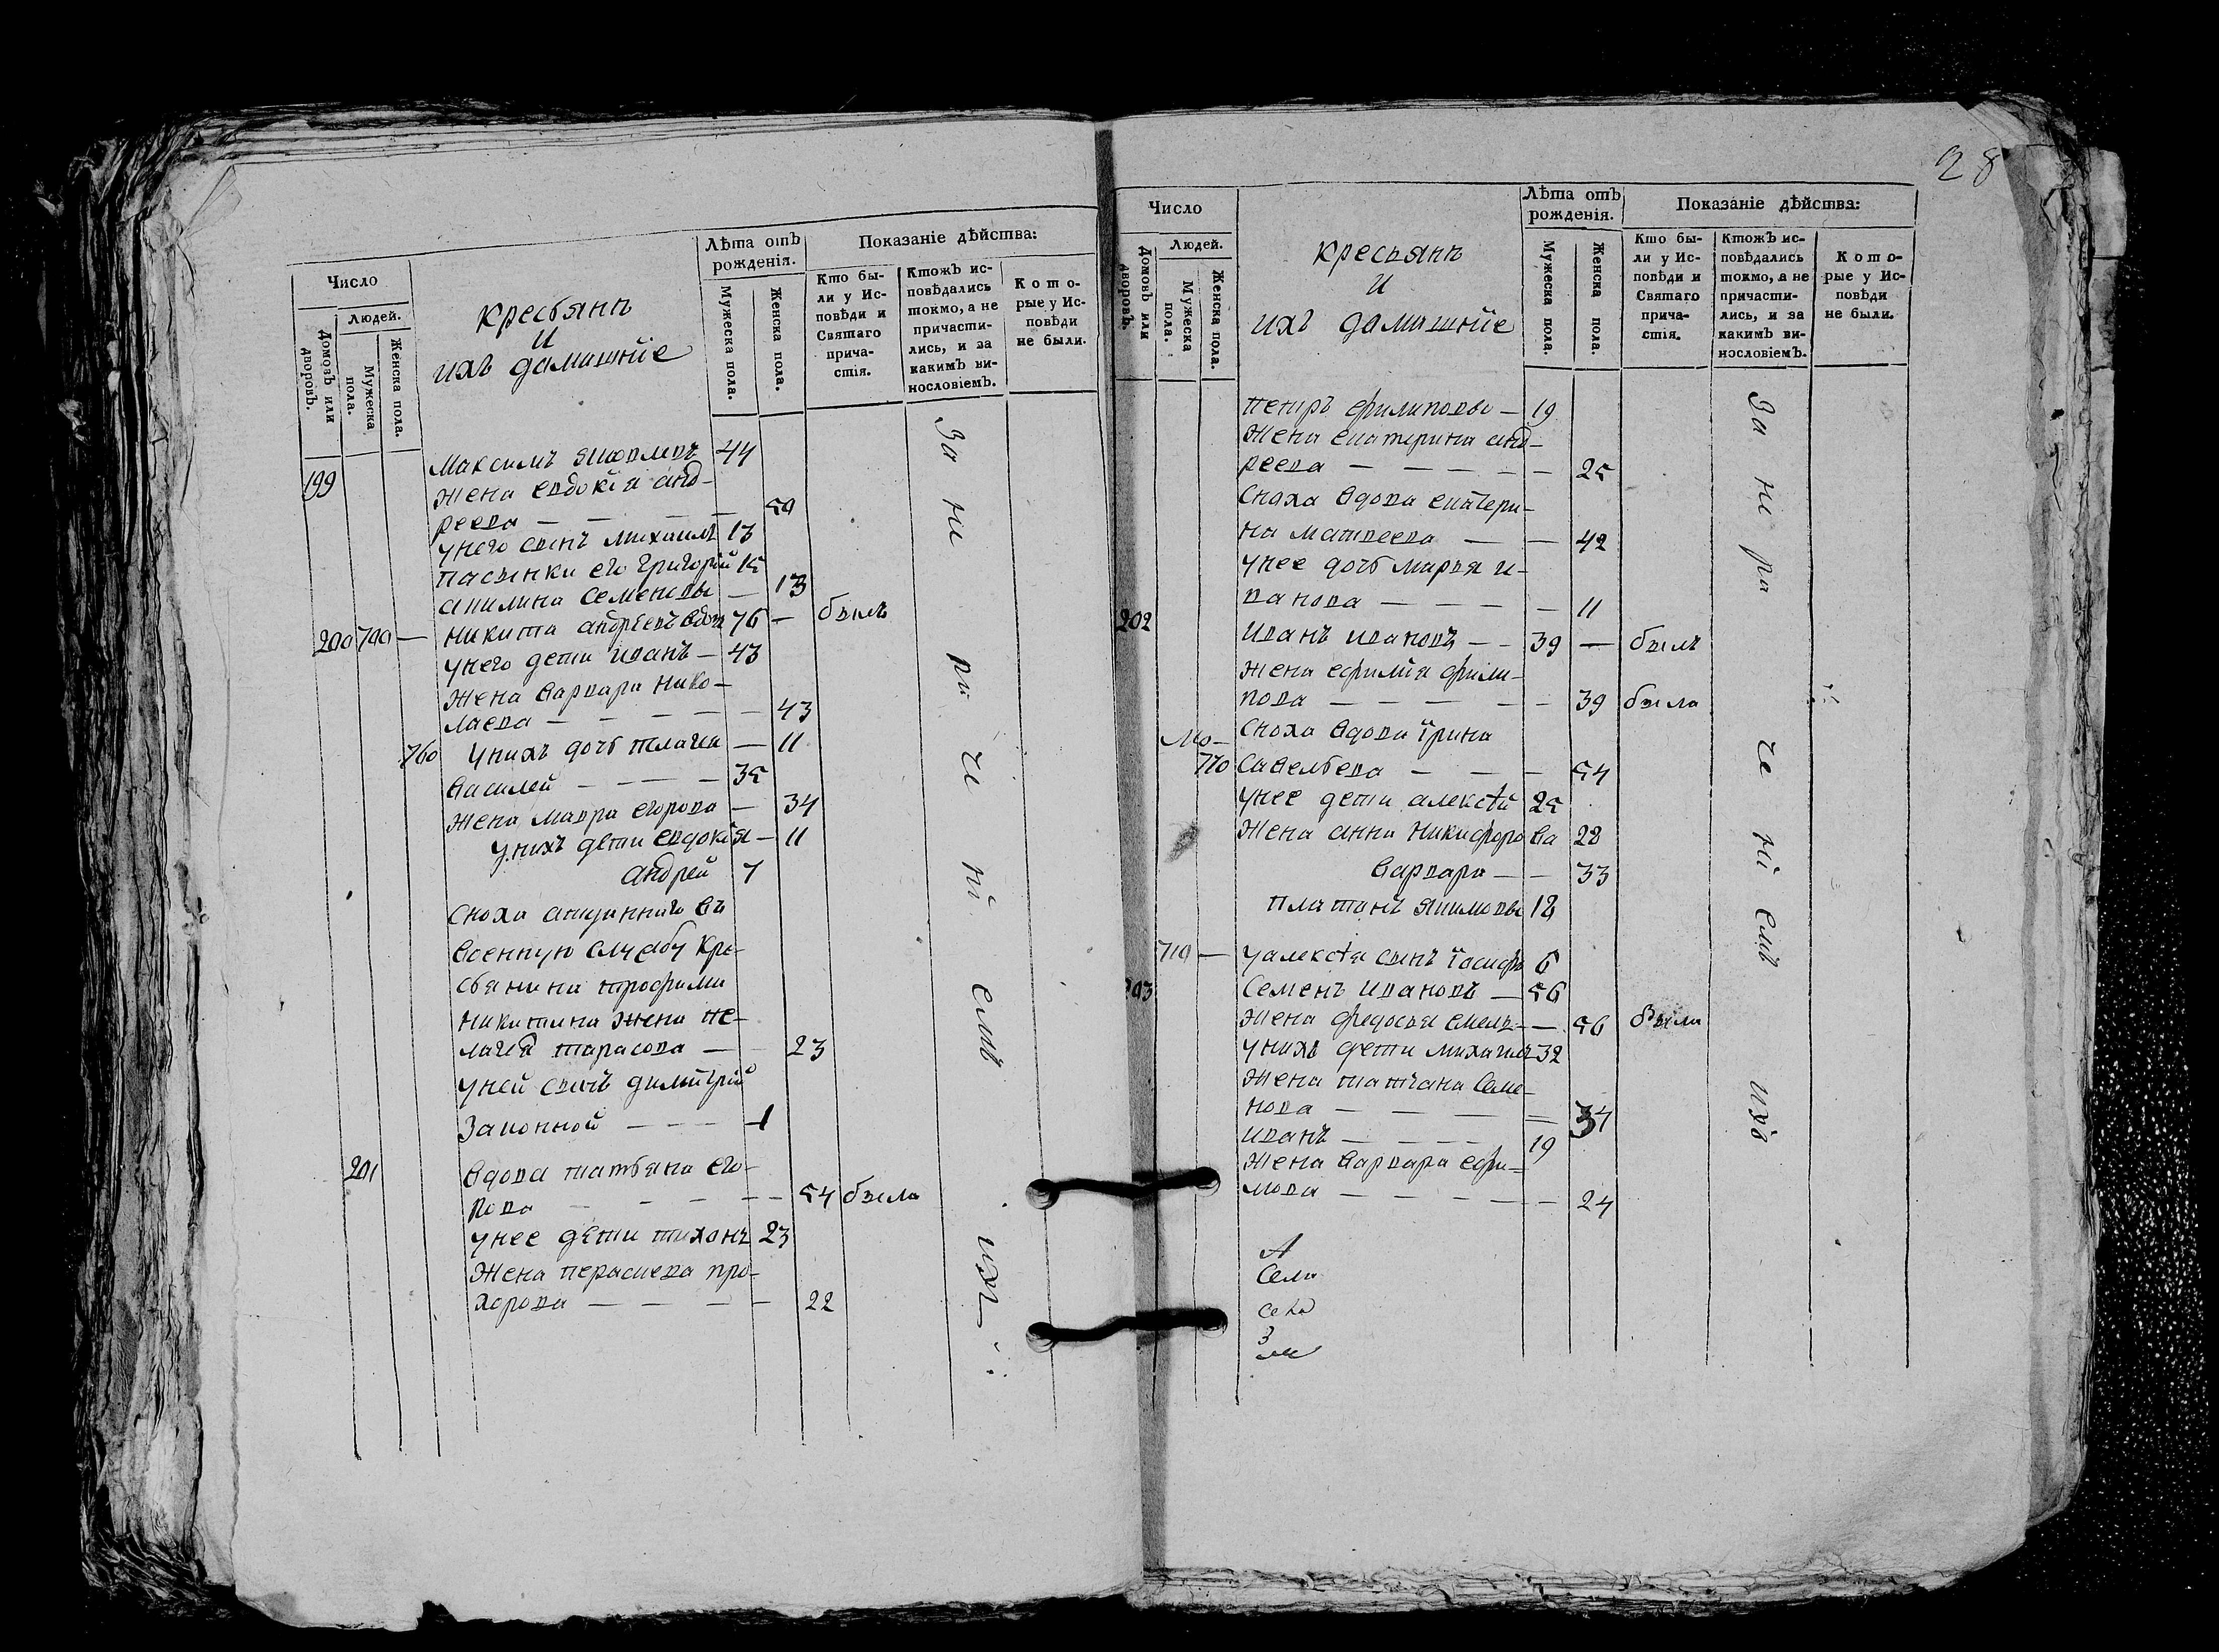 Число
Людей.
Домовъ или дворовъ.
Мужеска пола.
Женска пола.
Крестьянъ
и
ихъ домашніе
Лѣта отъ рожденія.
Мужеска пола.
Женска пола.
Показаніе дѣйства:
Кто бы-
ли у Ис-
повѣди и
Святаго
прича-
стія.
Ктожъ ис-
повѣдались
токмо, а не
причасти-
лись, и за
какимъ ви-
нословіемъ.
Кото-
рые у Ис-
повѣди
не были.
199 Максимъ 44
жена евдокія анд-
реева — 50
унего сынъ михаилъ 13
пасынки его григорій 15
семеновы — 13
200 700 — никита андреевъ вдов 76 — былъ
унего дети иванъ — 43
жена варвара нико-
лаева — 43
760 унихъ дочь — 11
василей — 35
жена мавра егорова — 34
унихъ дети евдокія — 11
андрей 7
сноха въ
военную службу кре-
стьянина трофима
никитина жена пе-
лагея тарасова — 23
уней сынъ димитрій
законной — 1
201 вдова татьяна его-
рова — 54 была
унее дети тиханъ 23
жена параскева про-
хорова — 22
За не ра че ні емъ ихъ
28
Число
Людей.
Домовъ или дворовъ.
Мужеска пола.
Женска пола.
кресьянъ
и
ихъ домашніе
Лѣта отъ рожденія.
Мужеска пола.
Женска пола.
Показаніе дѣйства:
Кто бы-
ли у Ис-
повѣди и
Святаго
прича-
стія.
Ктожъ ис-
повѣдались
токмо, а не
причасти-
лись, и за
какимъ ви-
нословіемъ.
Кото-
рые у Ис-
повѣди
не были.
петръ филиповъ — 19
жена екатерина анд-
реева — 25
сноха вдова екатери-
на матвеева — 42
унее дочь марья и-
ванова — 11
202 иванъ ивановъ — 39 — былъ
жена ефимія фили-
пова — 39 была
сноха вдова ірина
770 савельева — 54
унее дети алексѣй 25
жена анна никифорова 22
варвара — 33
платонъ 12
710 — уалексѣя сынъ іосифъ 6
203 семенъ ивановъ — 56
жена федосья — 56 была
унихъ дети михаилъ 32
жена татіана семе-
нова — 34
иванъ — 19
жена варвара ефи-
мова — 24
За не ра че ні емъ ихъ